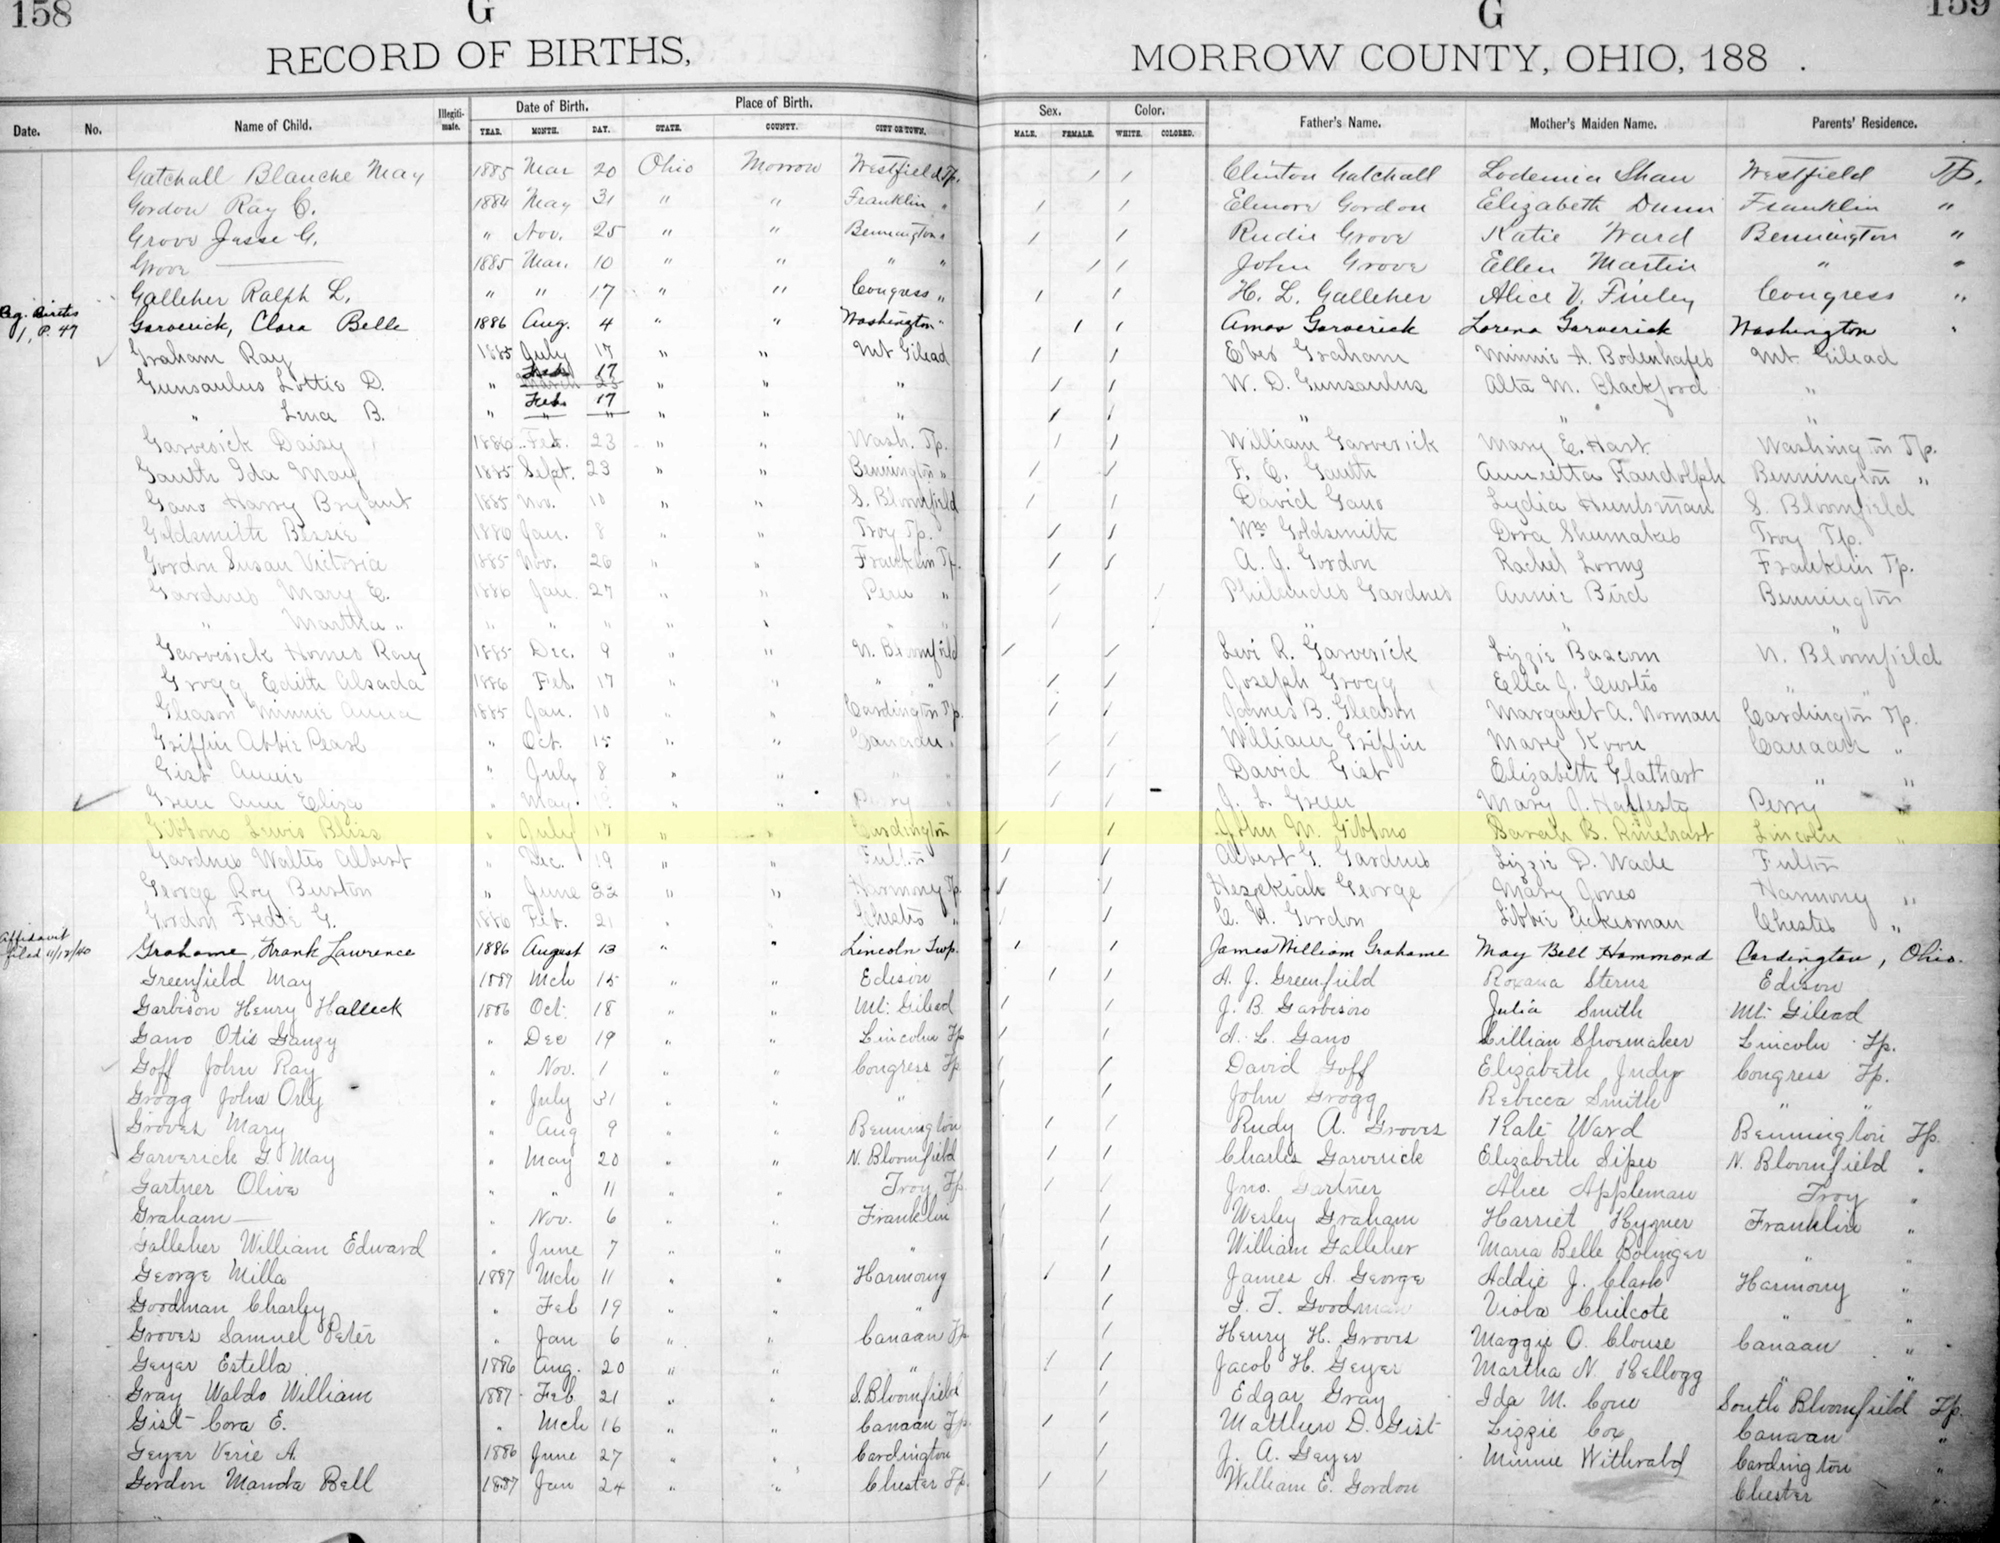 158 G G 159
RECORD OF BIRTHS, MORROW COUNTY, OHIO, 188 .
Date. No. Name of Child. Illegiti-mate. Date of Birth. Place of Birth. Sex. Color. Father's Name. Mother's Maiden Name. Parents' Residence.
YEAR. MONTH. DAY. STATE. COUNTY. CITY OR TOWN. MALE. FEMALE. WHITE. COLORED.
Gatchall Blanche May 1885 Mar 20 Ohio Morrow Westfield Tp. / / Clinton Gatchall Lodemia Shaw Westfield Tp.
Gordon Ray C. 1884 May 31 " " Franklin " / / Elmore Gordon Elizabeth Dunn Franklin "
Grove Jesse G. " Nov. 25 " " Bennington " / / Rudie Grove Katie Ward Bennington "
Grove — 1885 Mar. 10 " " " " / / John Grove Ellen Martin " "
Galleher Ralph L. " " 17 " " Congress " / / H. L. Galleher Alice V. Finley Congress "
Reg. Births 1, P. 47 Garverick, Clara Belle 1886 Aug. 4 " " Washington " / / Amos Garverick Lorena Garverick Washington "
Graham Ray 1885 July 17 " " Mt Gilead / / Graham Minnie A. Mt. Gilead
Gunsaulus Lottie D. " Feb 17 March 23 " " " / / W. D. Gunsaulus Alta M. Blackford "
" Lina B. " Feb. 17 " " " " " / / " " "
Garverick Daisy 1886 Feb. 23 " " Wash. Tp. / / William Garverick Mary E. Hart Washington Tp.
Gauth Ida May 1885 Sept. 23 " " Bennington " / / F. C. Gauth Annetta Randolph Bennington "
Gano Harry Bryant 1885 Nov. 10 " " S. Bloomfield / / David Gano Lydia Huntsman S. Bloomfield
Goldsmith Bessie 1886 Jan. 8 " " Troy Tp. / / Wm Goldsmith Dora Shumaker Troy Tp.
Gordon Susan Victoria 1885 Nov. 26 " " Franklin Tp. / / A. J. Gordon Rachel Franklin Tp.
Gardner Mary E. 1886 Jan. 27 " " Peru " / / Philander Gardner Annie Bird Bennington
" Martha " " " " " " " " / / " " "
Garverick Homer Ray 1885 Dec. 9 " " N. Bloomfield / / Levi R. Garverick Lizzie Bascom N. Bloomfield
Grogg Edith Alsada 1886 Feb. 17 " " " " / / Joseph Grogg Ella J. Curtis " "
Gleason Minnie Anna 1885 Jan. 10 " " Cardington Tp. / / James B. Gleason Margaret A. Norman Cardington Tp.
Griffin Abbie Pearl " Oct. 15 " " Canaan " / / William Griffin Mary Canaan "
Gist Annie " July 8 " " " " / / David Gist Elizabeth Glathart " "
Green Ann Eliza " May " " Perry " / / J. L. Green Mary J. Perry "
Gibbons Lewis Bliss " July 17 " " Cardington / / John M. Gibbons Sarah B. Rinehart Lincoln "
Gardner Walter Albert " Dec. 19 " " Fulton / / Albert G. Gardner Lizzie D. Wade Fulton
George Roy Burton " June 22 " " Harmony Tp. / / Hezekiah George Mary Jones Harmony "
Gordon Fredie G. 1886 Feb. 21 " " Chester " / / Gordon Libbie Ackerman Chester "
Affidavit filed 11/12/40 Grahame, Frank Lawrence 1886 August 13 " " Lincoln Twp. / / James William Grahame May Bell Hammond Cardington, Ohio.
Greenfield May 1887 Mch 15 " " Edison / / A. J. Greenfield Roxana Sterns Edison
Garbison Henry Halleck 1886 Oct. 18 " " Mt. Gilead / / J. B. Garbison Julia Smith Mt. Gilead
Gano Otis " Dec 19 " " Lincoln Tp / / A. L. Gano Lillian Shoemaker Lincoln Tp.
Goff John Ray " Nov. 1 " " Congress Tp / / David Goff Elizabeth Judy Congress Tp.
Grogg John Orly " July 31 " " " / / John Grogg Rebecca Smith " "
Groves Mary " Aug 9 " " Bennington / / Rudy A. Groves Kate Ward Bennington Tp.
Garverick G. May " May 20 " " N. Bloomfield / / Charles Garverick Elizabeth Sipes N. Bloomfield "
Gartner Olive " " 11 " " Troy Tp / / Jno. Gartner Alice Appleman Troy "
Graham — " Nov. 6 " " Franklin / / Wesley Graham Harriet Franklin "
Galleher William Edward " June 7 " " " / / William Galleher Maria Belle Bolinger " "
George Milla 1887 Mch 11 " " Harmony / / James A. George Addie J. Clark Harmony "
Goodman Charley " Feb 19 " " " / / Goodman Viola Chilcote " "
Groves Samuel Peter " Jan 6 " " Canaan Tp / / Henry H. Groves Maggie O. Clouse Canaan "
Geyer Estella 1886 Aug. 20 " " " / / Jacob H. Geyer Martha N. Kellogg " "
Gray Waldo William 1887 Feb 21 " " S. Bloomfield / / Edgar Gray Ida M. South Bloomfield Tp.
Gist Cora E. " Mch 16 " " Canaan Tp. / / Matthew D. Gist Lizzie Cox Canaan "
Geyer Verie A. 1886 June 27 " " Cardington / / J. A. Geyer Minnie Cardington "
Gordon Manda Bell 1887 Jan 24 " " Chester Tp. / / William E. Gordon Chester "